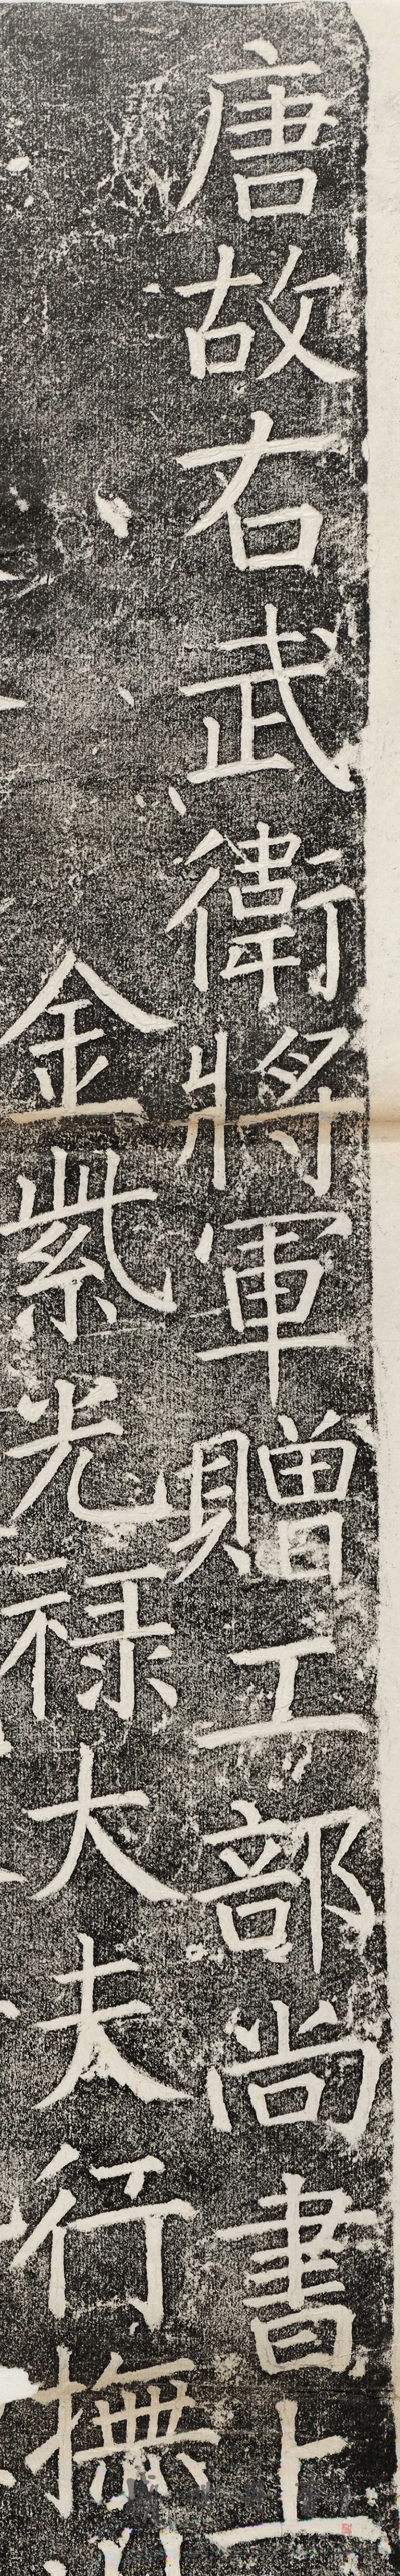 唐故右武衛將軍贈工部尚書上
金紫光禄大夫行撫